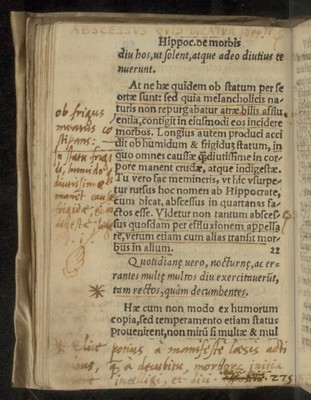 ABSCESSUS QUID DICATUR
Hippoc. de morbis
diu hos, ut solent, atque adeo diutius te
nuerunt.
At ne hæ quidem ob statum per se
ortæ sunt: sed quia melancholicis na-
turis non repurgabatur atræ bilis afflu,
entia, contigit in eiusmodi eos incidere
morbos. Longius autem produci acci
dit ob humidum & frigidũ statum, in
quo omnes caussæ q̃diutissime in cor
pore manent crudæ, atque indigestæ.
Tu vero fac memineris, vt hic vsurpe-
tur rursus hoc nomen ab Hippocrate,
cum dicat, abscessus in quartanas fa-
ctos esse. Videtur non tantum absces-
sus quosdam per effluxionem appella
re, verum etiam cum alias transit mor-
bus in alium. 22
ob frigus
stipans:
in statu frigi
do, humido
diutissime
manet causa
frigidæ,
Quotidianæ uero, nocturnæ, ac er-
rantes multæ multos diu exercituerũt,
tam rectos, quàm decumbentes.
Hæ cum non modo ex humorum
copia, sed temperamento etiam status
prouenirent, non mirũ si multæ & mul
potius à manifeste læsis acti
à decubitu,
et diu 275